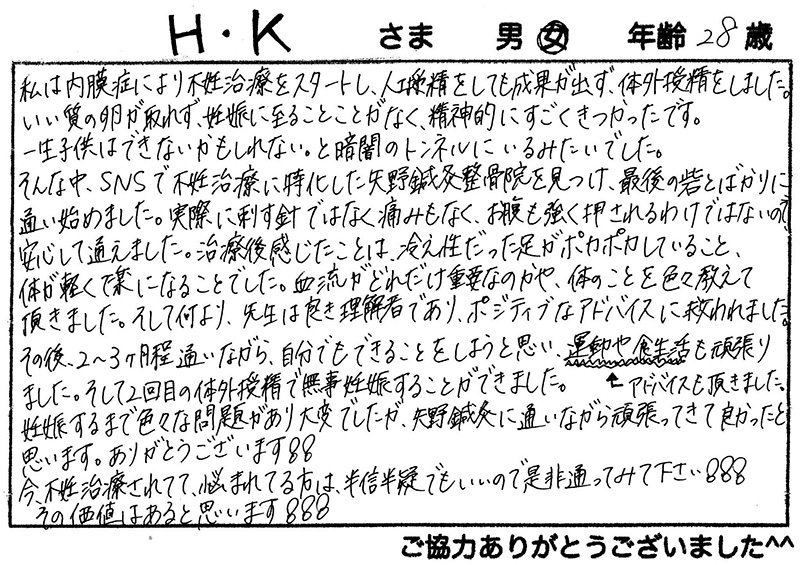 H・K さま 男 女 年齢 28 歳
私は内膜症により不妊治療をスタートし、人工授精をしても成果が出ず、体外授精をしました。
いい質の卵が取れず、妊娠に至ることことがなく、精神的にすごくきつかったです。
一生子供はできないかもしれない。と暗闇のトンネルにいるみたいでした。
そんな中、SNSで不妊治療に特化した矢野鍼灸整骨院を見つけ、最後の砦とばかりに
通い始めました。実際に刺す針ではなく痛みもなく、お腹も強く押されるわけではないので
安心して通えました。治療後感じたことは、冷え性だった足がポカポカしていること、
体が軽くて楽になることでした。血流がどれだけ重要なのかや、体のことを色々教えて
頂きました。そして何より、先生は良き理解者であり、ポジティブなアドバイスに救われました。
その後、2〜3ヶ月程通いながら、自分でもできることをしようと思い、運動や食生活も頑張り
ました。そして2回目の体外授精で無事妊娠することができました。 ↑アドバイスも頂きました。
妊娠するまで色々な問題があり大変でしたが、矢野鍼灸に通いながら頑張ってきて良かったと
思います。ありがとうございます!!
今、不妊治療されてて、悩まれてる方は、半信半疑でもいいので是非通ってみて下さい!!!
その価値はあると思います!!!
ご協力ありがとうございました^^